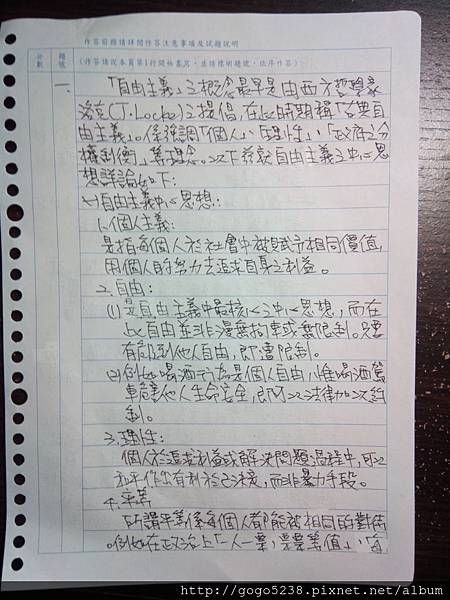 作答前務請詳閱作答注意事項及試題說明
分數
題號
(作答請從本頁第1行開始書寫，並請標明題號，依序作答)
一、
「自由主義」之概念最早是由西方哲學家
洛克(J.Locke)之提倡，在此時期稱「古典自
由主義」。係強調「個人」、「理性」、「政府之分
權制衡」等理念。以下茲就自由主義之中心思
想詳論如下：
(一)自由主義中心思想：
1.個人主義：
是指每個人於社會中被賦予相同價值，
用個人的努力去追求自身之利益。
2.自由：
(1)是自由主義中最核心之中心思想，而在
此自由並非漫無拘束或無限制。只要
有能到他人自由，即遭限制。
(2)例如喝酒亦為是個人自由，惟喝酒駕
車危害他人生命安全，即可以法律加以約
制。
3.理性：
個人於追求利益或解決問題過程中，可以
和平作出有利於己決，而非暴力手段。
4.平等
所謂平等係每個人都能被相同的對待
。例如在政治上「一人一票，票票等值」、「每
http://gogo5238.pixnet.net/album